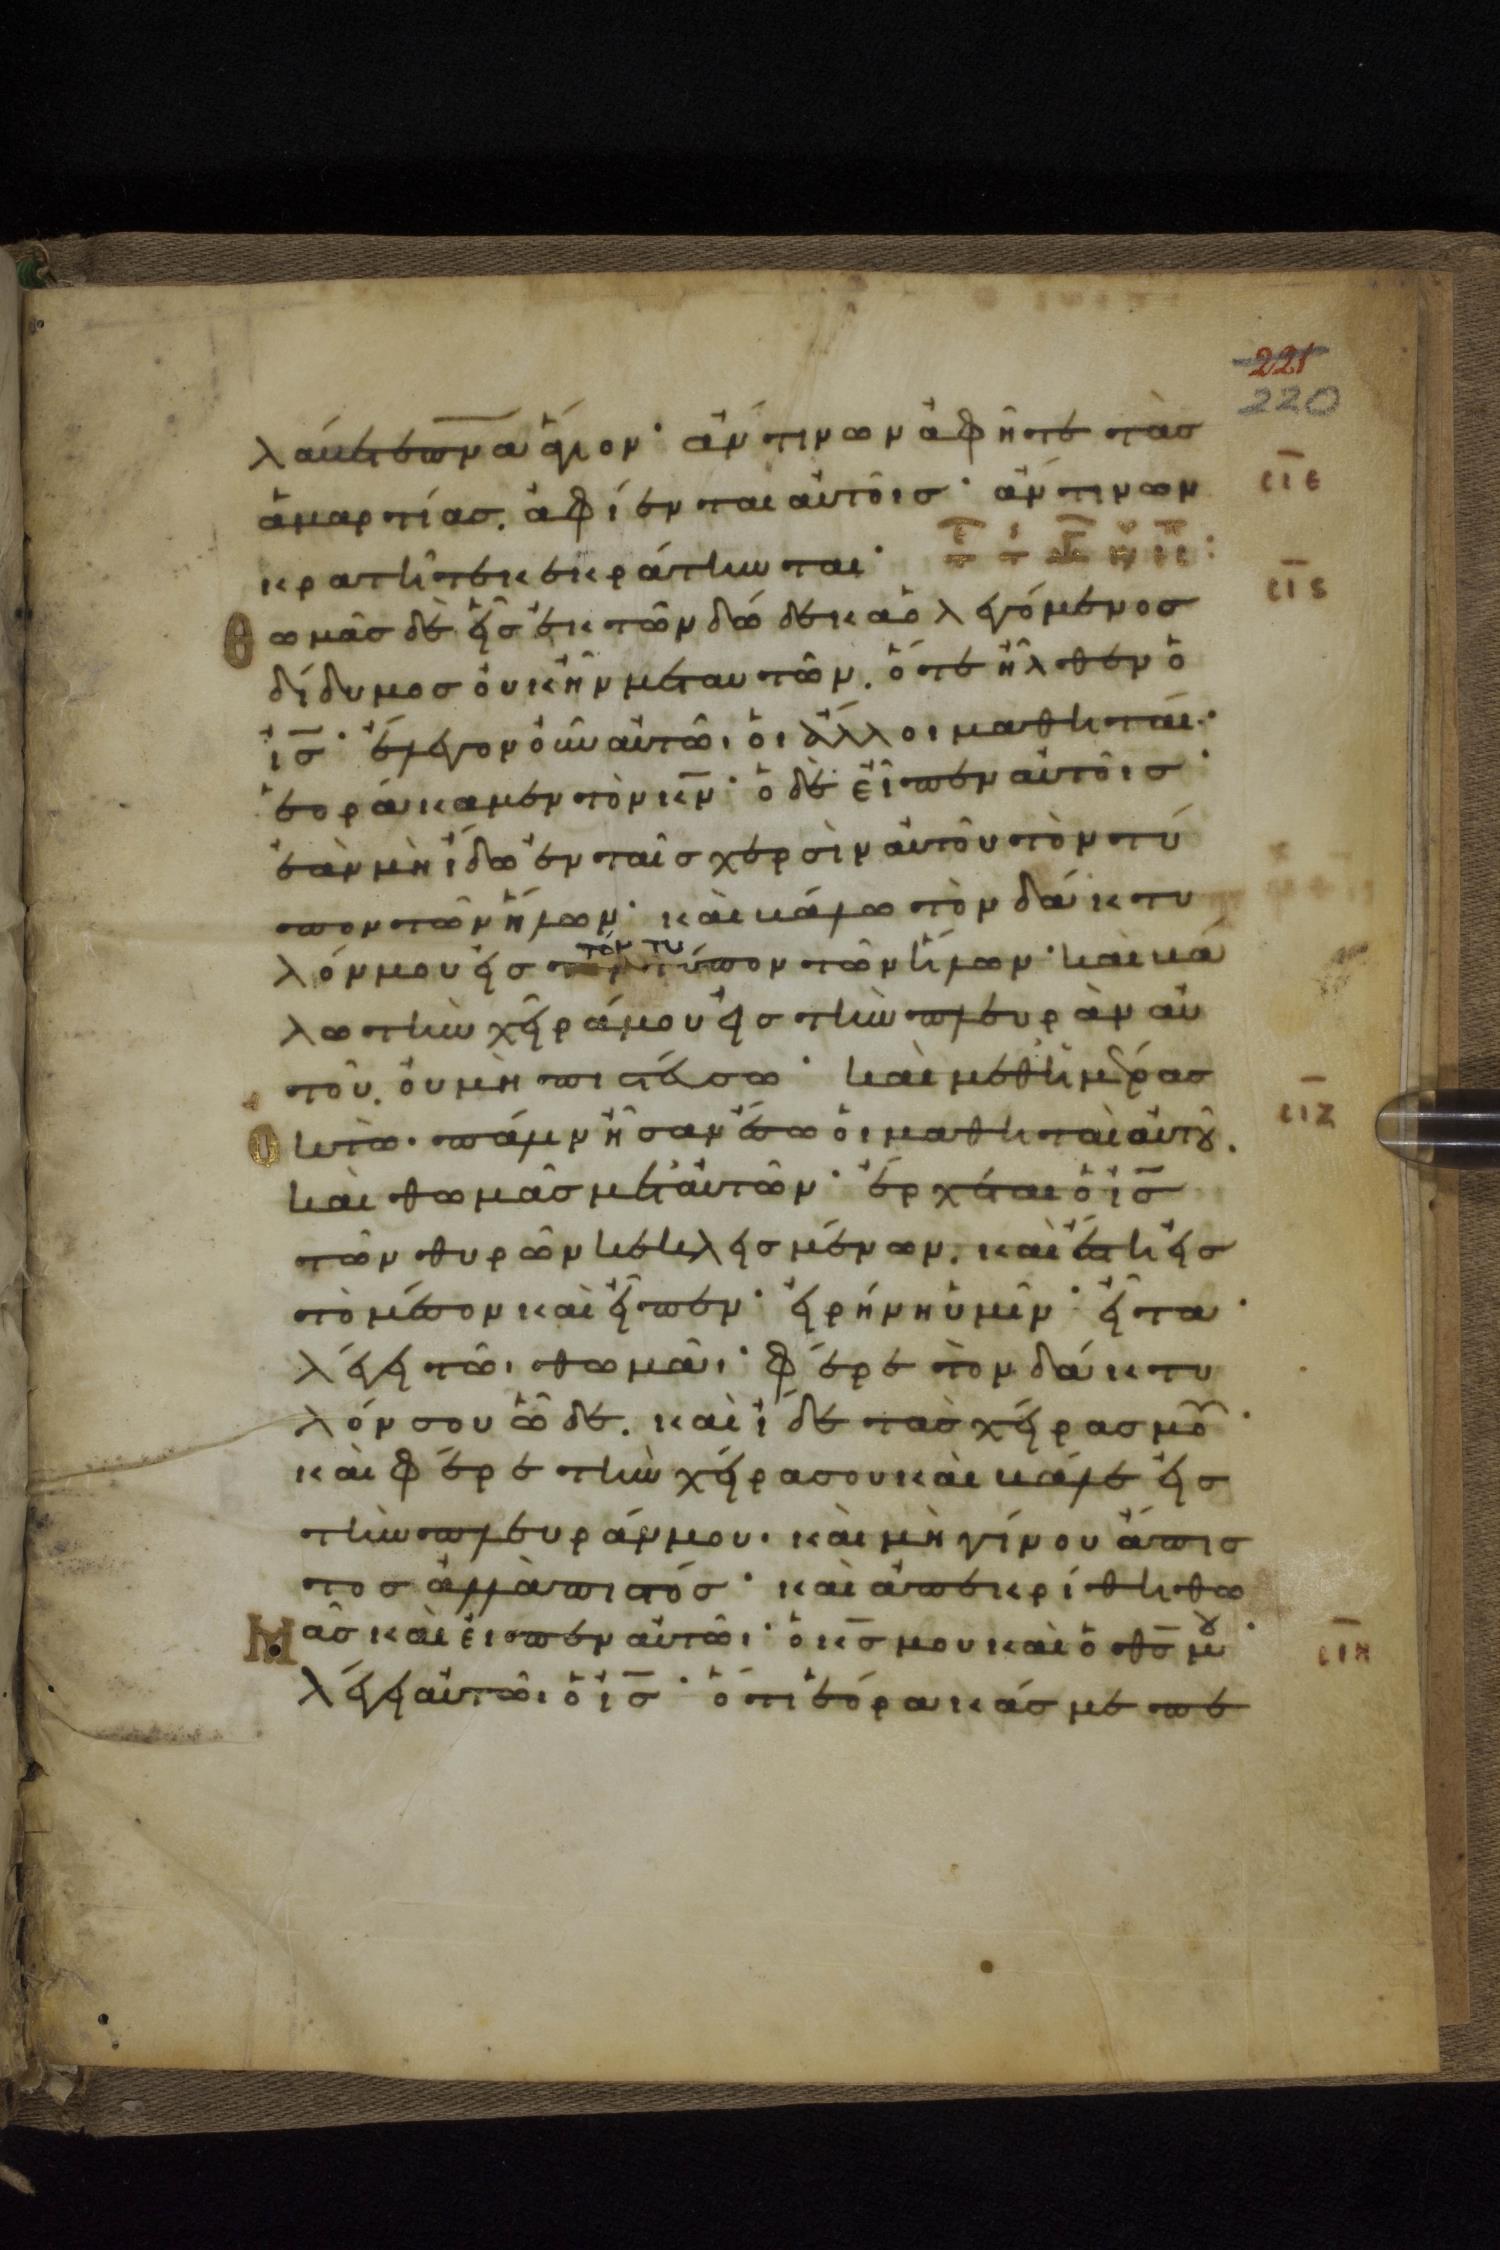 221
220
λάβετε πν̅α ἅγιον· ἄν τινων ἀφῆτε τὰσ
ἁμαρτίασ. ἀφίενται αὐτοῖσ· ἄν τινων
κρατῆτε κεκράτηνται·
Θωμᾶσ δὲ εἷσ ἐκ τῶν δώδεκα ὁ λεγόμενοσ
δίδυμοσ οὐκ ἦν μετ αυτῶν. ὅτε ἦλθεν ὁ
ἰσ̅· ἔλεγον οὖν αὐτῶι οἱ ἄλλοι μαθηταί·
ἑοράκαμεν τὸν κν̅· ὁ δὲ εἶπεν αὐτοῖσ·
ἐὰν μὴ ἴδω ἐν ταῖσ χερσὶν αὐτοῦ τὸν τύ
πον τῶν ἥλων· καὶ βάλω τὸν δάκτυ
λόν μου εἰσ τὸν τύπον τῶν ἥλων· καὶ βά
λω τὴν χεῖρά μου εἰσ τὴν πλευρὰν αὐ
τοῦ. οὐ μὴ πιστεύσω· Καὶ μεθ ἡμέρασ
ὀκτὼ· πάλιν ἦσαν ἔσω οἱ μαθηταὶ αὐτοῦ.
καὶ θωμᾶσ μετ αὐτῶν· ἔρχεται ὁ ἰσ̅
τῶν θυρῶν κεκλεισμένων. καὶ ἔστη εἰσ
τὸ μέσον καὶ εἶπεν· εἰρήνη ὑμῖν· εἶτα·
λέγει τῶι θωμᾶι· φέρε τὸν δάκτυ
λόν σου ὧδε. καὶ ἴδε τασ χεῖρασ μου·
καὶ φέρε τὴν χεῖρα σου καὶ βάλε εἰσ
τὴν πλευράν μου· καὶ μὴ γίνου ἄπισ
τοσ ἀλλὰ πιστόσ· καὶ ἀπεκρίθη θω
μᾶσ καὶ εἶπεν αὐτῶι· ὁ κσ̅ μου καὶ ὁ θσ̅ μου·
λέγει αὐτῶι ὁ ἰσ̅· ὅτι ἑόρακάσ με πε